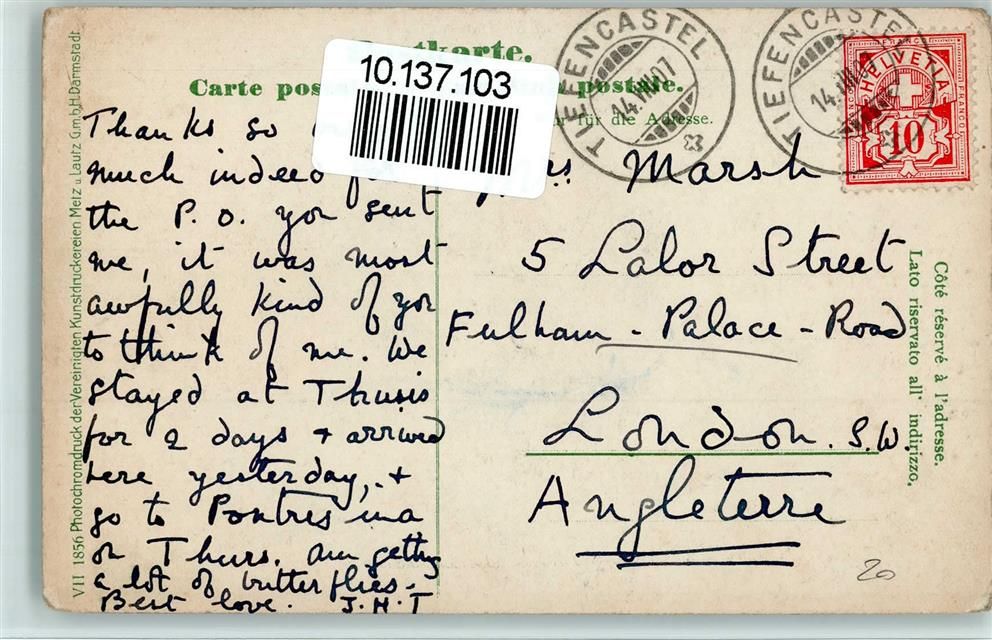 Postkarte.
Carte postale.
10.137.103
für die Adresse.
TIEFENCASTEL
14.
07
TIEFENCASTEL
14.
FRANCO
HELVETIA
10
Thanks so
much indeed
the P.O. you sent
me, it was most
awfully kind of you
to think of me. We
stayed at Thusis
for 2 days + arrived
here yesterday, +
go to Pontresina
on Thurs. Am getting
a lot of butterflies.
Best love. J.H.T
Mrs Marsh
5 Lalor Street
Fulham - Palace - Road
London. S.W.
Angleterre
20
Côté réservé à l'adresse.
Lato riservato all' indirizzo.
VII 1856 Photochromdruck der Vereinigten Kunstdruckereien Metz u. Lautz G.m.b.H. Darmstadt.